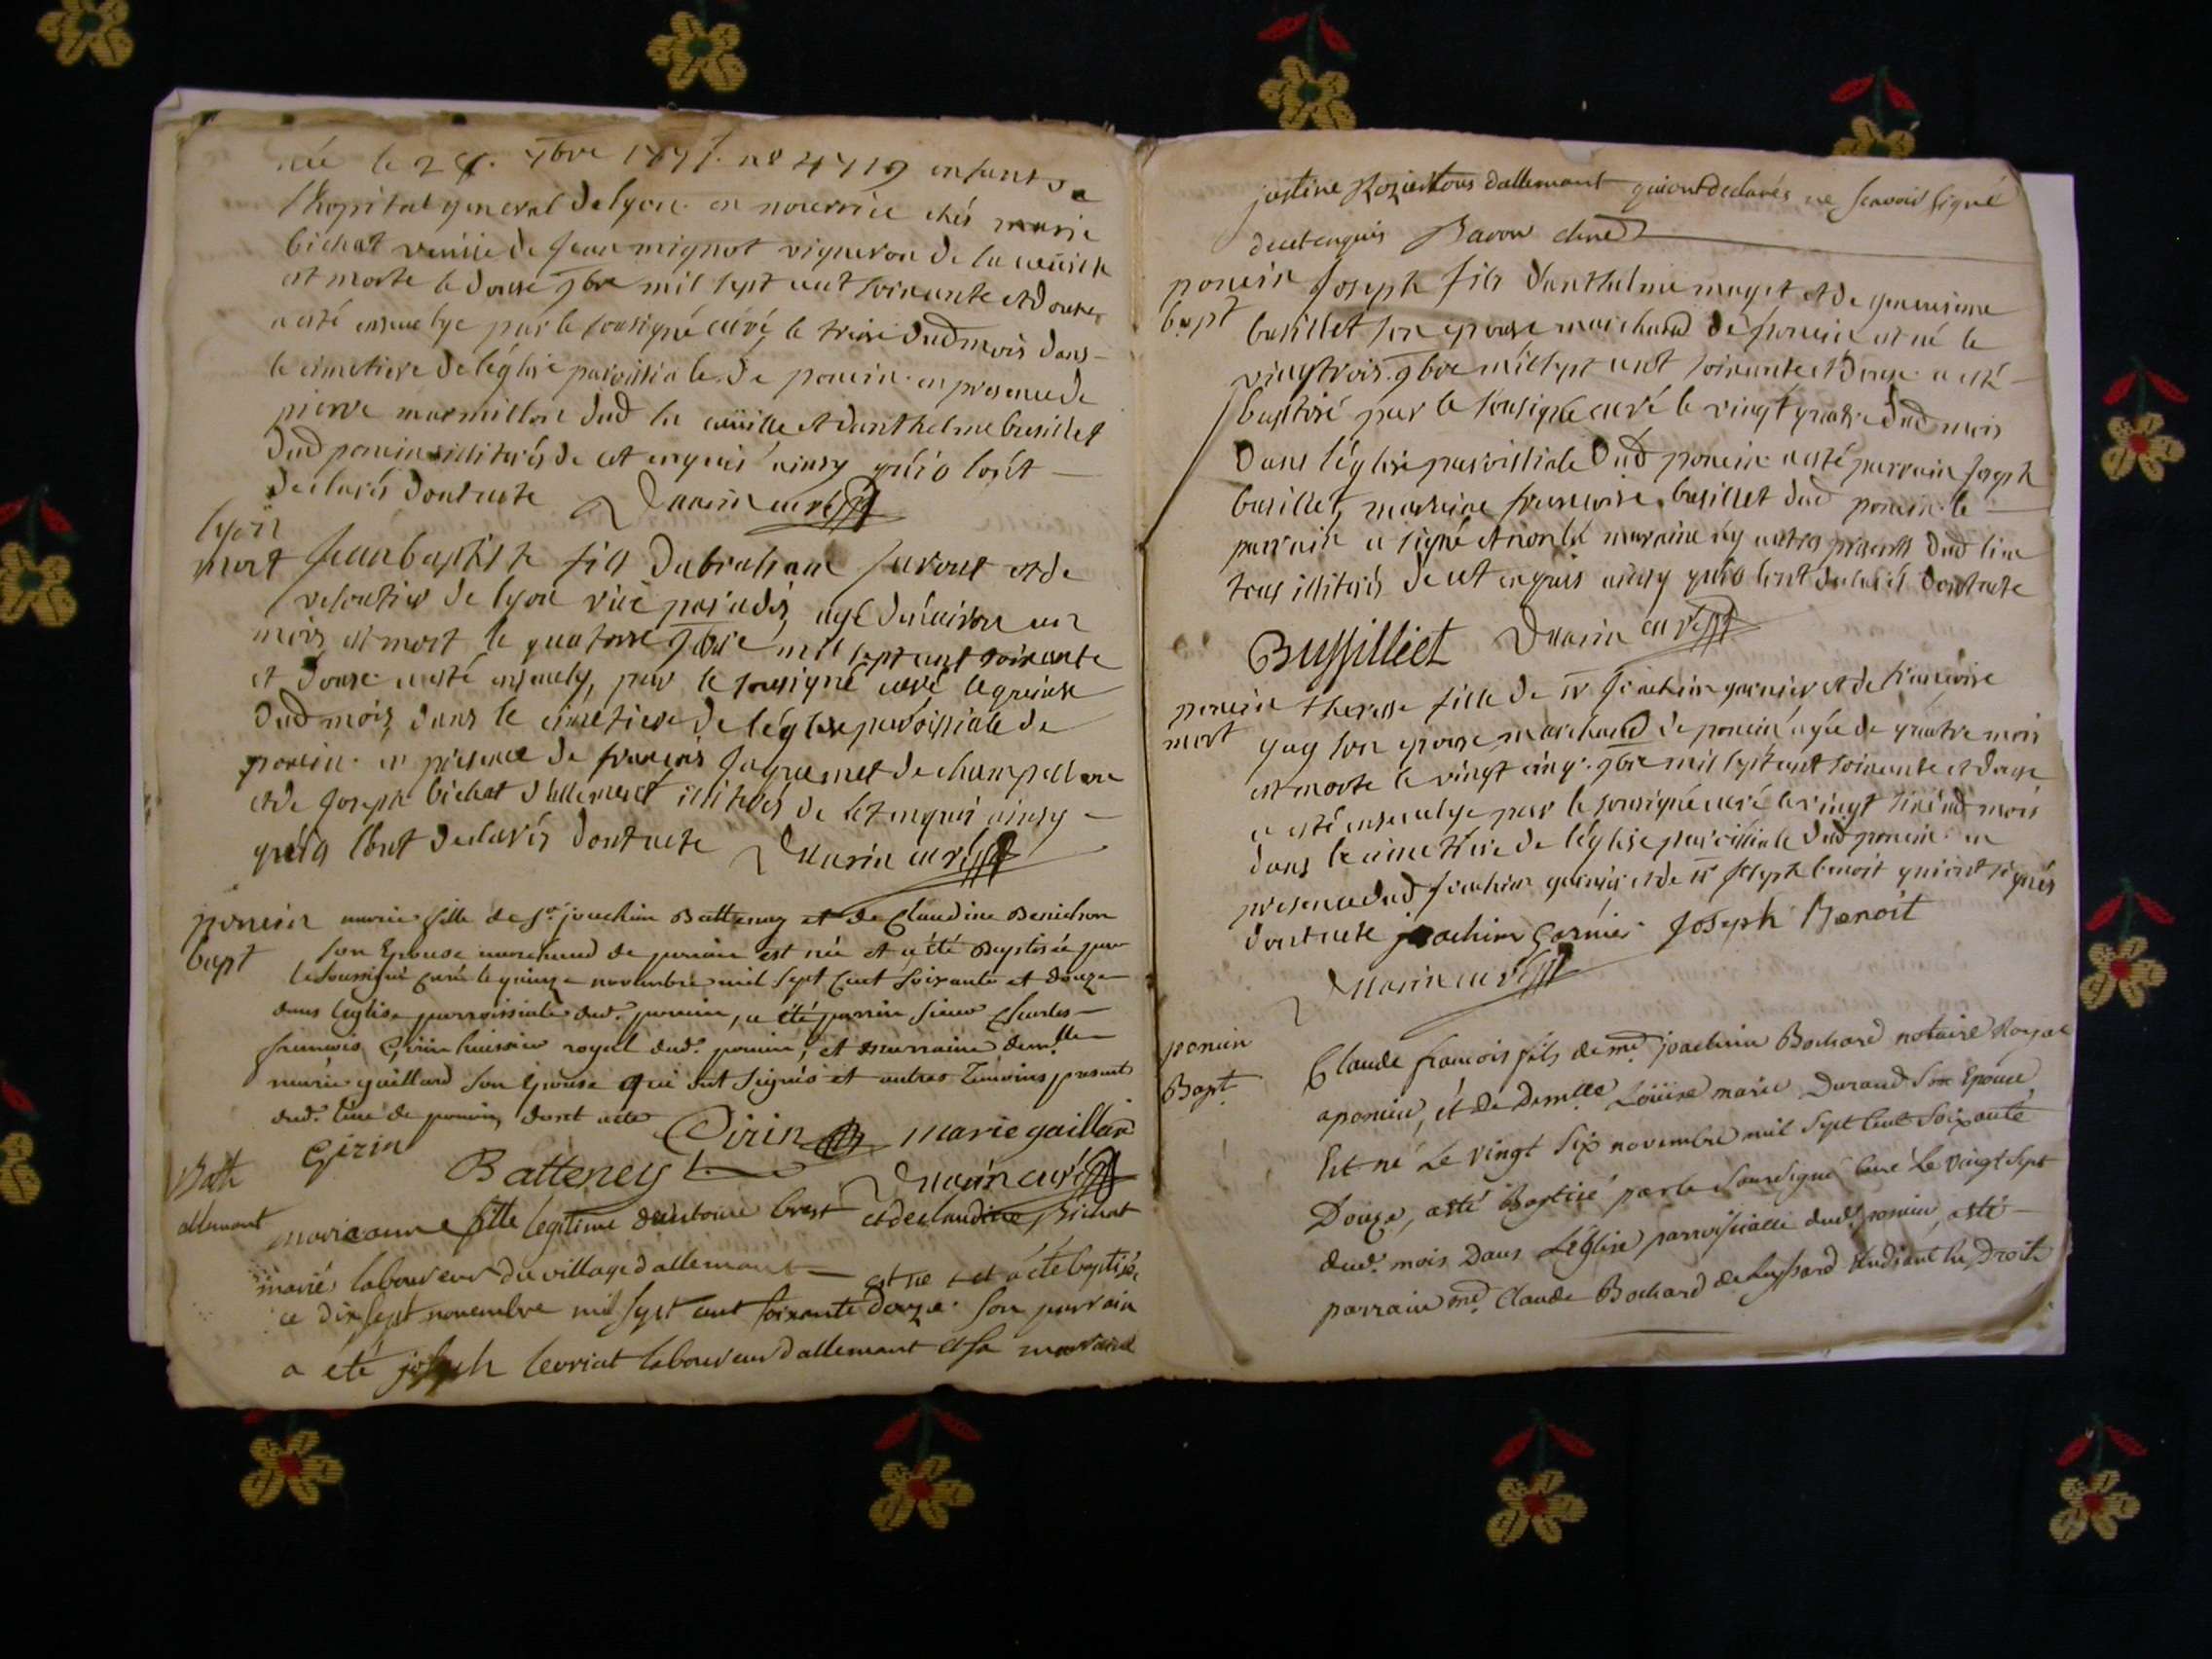 née le 7bre enfant de
l'hopital general de lyon en nourrice chés marie
bichat veuve de jean mignot vigneron de la cueille
est morte le douse 9bre mil sept cent soixante et douse
a esté ensevelye par le sousigné curé le treise dud mois dans
le cimetiere de léglise paroissiale de poncin en presence de
pierre marmillon dud la cueille et danthelme busillet
dud poncin illiterés de cet enquis ainsy quils lont
declarés dont acte curé
lyon
mort jean baptiste fils et de
de lyon rüe paradis, agé denviron un
mois est mort le quatorse 9bre mil sept cent soixante
et douse a esté ensevely par le sousigné curé le quinse
dud mois dans le cimetiere de léglise paroissiale de
poncin en presence de françois jaquemet de champollon
et de joseph bichat dallemant illiterés de cet enquis ainsy
quils lont declarés dont acte curé
poncin marie fille de Sr. joachim Battenay et de Claudine Benichon
bapt son Epouse marchand de poncin est née et a été Baptisée par
le soussigné curé le quinze novembre mil sept cent soixante et douze
dans leglise parroissiale dud. poncin, a été parrin sieur Charles
francois Girin huissier royal dud. poncin, et marraine demlle
marie gaillard son Epouse qui ont signés et autres temoins presents
dud. lieu de poncin dont acte Girin marie gaillard
Girin Batteney curé
Batt
allemant marieanne fille legitime dantoine brest et de claudine Bichat
marié laboureur du village dallemant est né et a été baptisé
ce dix sept novembre mil sept cent soixante douze. son parrain
a été joseph levriat laboureur dallemant et sa marraine
justine Rozier tous dallemant qui ont declarés ne scavoir signé
de cet enquis
poncin joseph fils danthelme et de
bapt busillet son epouse marchand de poncin est né le
vingt trois 9bre mil sept cent soixante et douse a esté
baptisé par le sousigné curé le vingt quatre dud mois
dans léglise paroissiale dud poncin a esté parrain joseph
busillet, marraine françoise busillet dud poncin le
parrain a signé et non la marraine ny autres presents dud lieu
tous illiterés de cet enquis ainsy quils lont declarés dont acte
Bussilliet curé
poncin therese fille de Sr joachim garnier et de françoise
mort guy son epouse marchand de poncin agée de quatre mois
est morte le vingt cinq 9bre mil sept cent soixante et douse
a esté ensevelye par le sousigné curé le vingt six dud mois
dans le cimetiere de léglise paroissiale dud poncin en
presence dud joachim garnier et de Sr joseph benoit qui ont signés
dont acte joachim Garnier Joseph Benoit
curé
poncin
Bapt. Claude francois fils de me. joachim Bochard notaire Royal
a poncin, et de demlle. Loüise marie Durand son Epouse
Est né Le vingt six novembre mil sept Cent soixante
Douze, a esté Baptisé par le sousigné Curé Le vingt sept
dud. mois Dans L'Eglise parroissialle dud. poncin, a esté
parrain me. Claude Bochard Etudiant en Droit